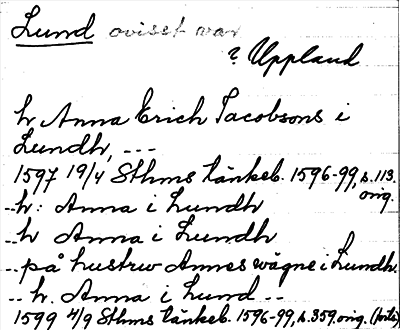 Lund oviset var
? Uppland
h Anna Erich Jacobsons i
Lundh, ---
1597 19/4 Sthms tänkeb. 1596-99, s. 113.
orig.
..h: Anna i Lundh
..h Anna i Lundh
..på hustru Annes wägne i Lundh.
.. h. Anna i Lund --
1599 4/9 Sthms tänkeb. 1596-99, s. 359. orig.